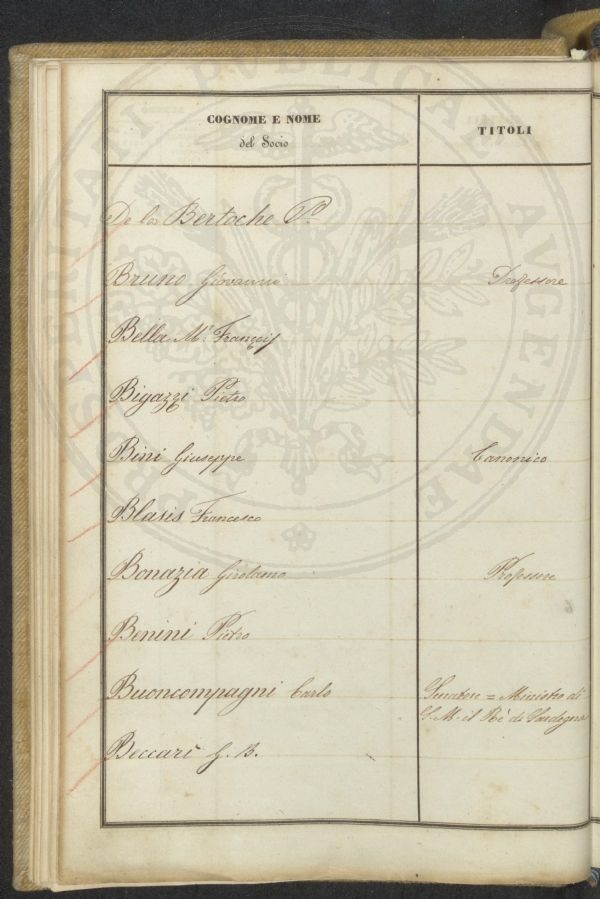 COGNOME E NOME
del Socio
TITOLI
De la Bertoche P.
Bruno Giovanni Professore
Bella Mr. François
Bigazzi Pietro
Bini Giuseppe Canonico
Blasis Francesco
Bonazia Girolamo Professore
Benini Pietro
Buoncompagni Carlo Senatore = Ministro di
S. M. il Re di Sardegna
Beccari G. B.
PROSPERITATI PUBLICAE AUGENDAE